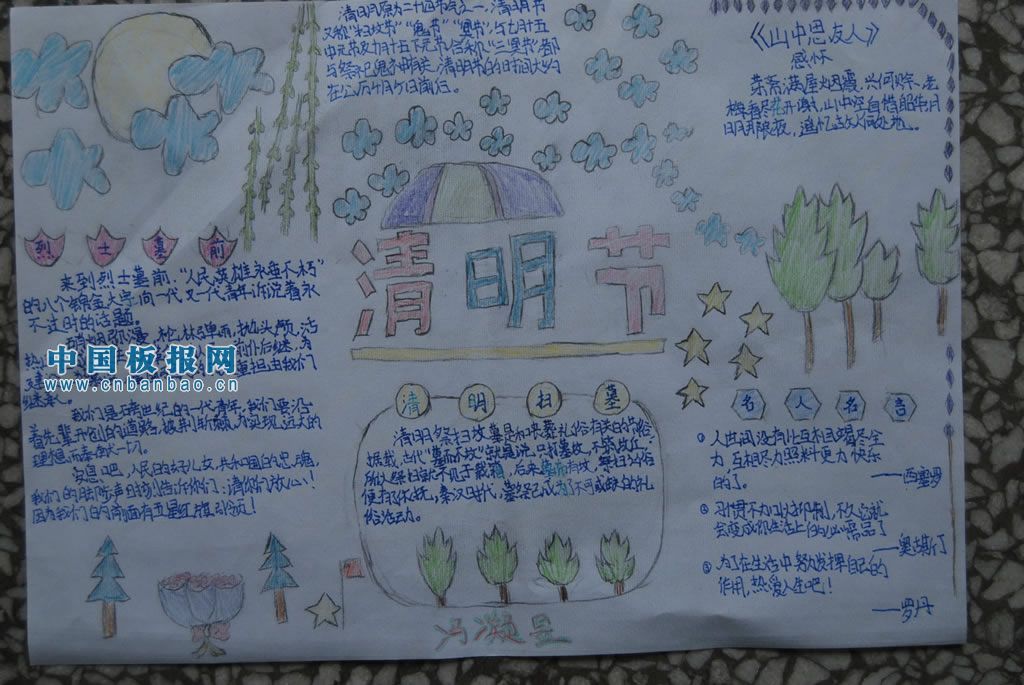 清明原为二十四节气之一,清明节
又称"扫坟节""鬼节""冥节",与七月十五
中元节及十月十五下元节合称"三冥节"都
与祭祀鬼神有关。清明节的时间大约
在公历4月5日前后。
《山中思友人》
感怀
茶斋满屋烟霞,兴何赊,老
梅看尽花开谢,山中空自惜韶华,月
明良夜,追忆故人何处也。
烈士墓前
来到烈士墓前,"人民英雄永垂不朽"
的八个镏金大字,向一代又一代青年诉说着永
不过时的话题。
枪林弹雨,抛头颅,洒
热
前仆后继,为
担由我们
继承。
我们是跨世纪的一代青年,我们要沿
着先辈开创的道路,披荆斩棘,为实现远大的
理想而奉献一切。
安息吧,人民的好儿女,共和国的忠魂,
我们的脚步声时刻告诉你们:请你们放心!
因为我们的前面有五星红旗引领!
中国板报网
www.cnbanbao.cn
清明节
清明扫墓
清明祭扫坟墓是和丧葬礼俗有关的节俗。
据载,古代"墓而不坟",就是说只打墓坑,不筑坟丘,
所以祭扫就不见于载籍。后来墓而且坟,祭扫之俗
便有了依托。秦汉时代,墓祭已成为不可或缺的礼
俗活动。
名人名言
① 人世间没有比互相竭尽全
力、互相尽力照料更加快乐
的了。
——西塞罗
② 习惯不加以抑制,不久它就
会变成你生活上的必需品了
——奥古斯丁
③ 为了在生活中努力发挥自己的
作用,热爱人生吧!
——罗丹
冯凝昱